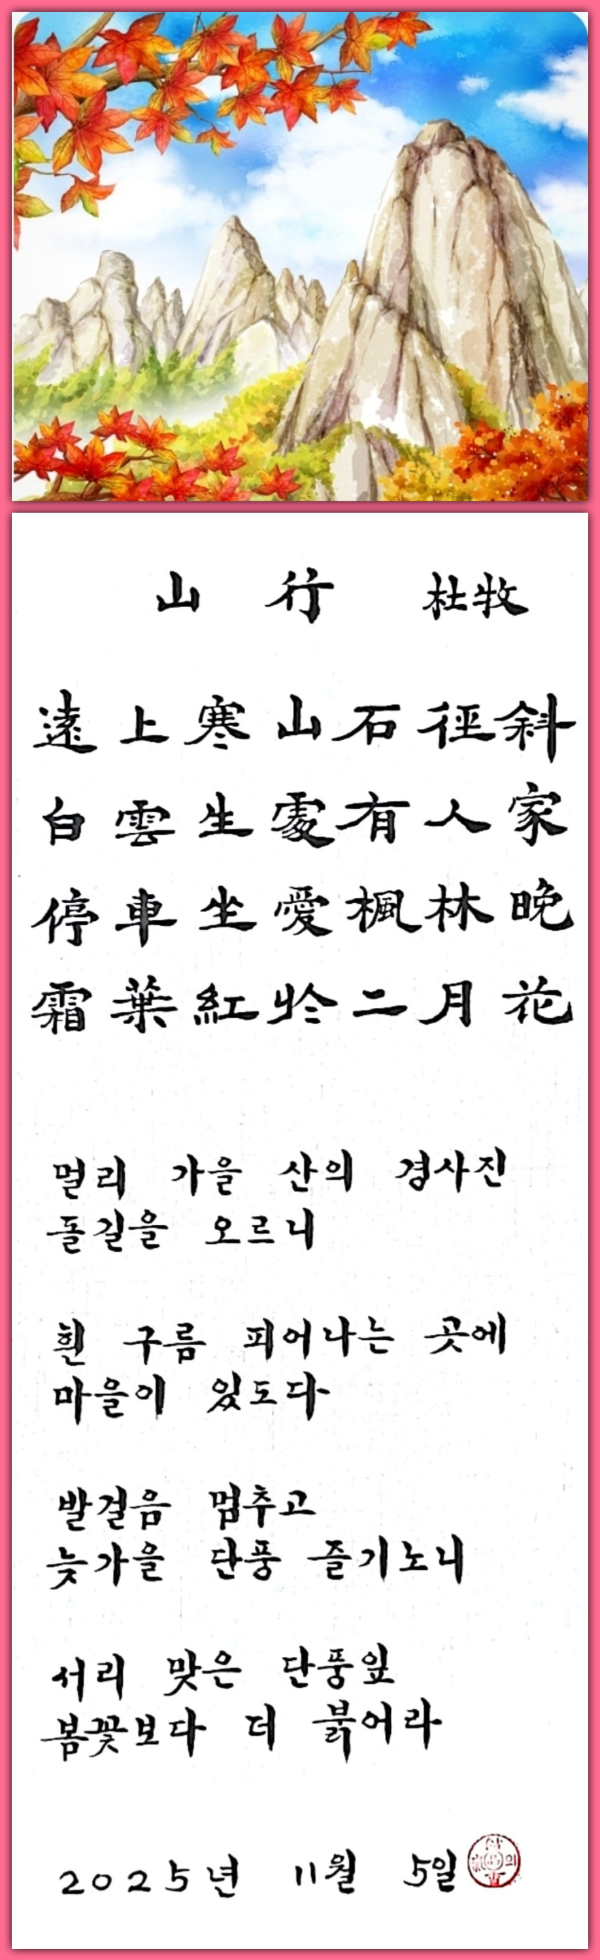 山 行 杜牧
遠上寒山石徑斜
白雲生處有人家
停車坐愛楓林晚
霜葉紅於二月花
멀리 가을 산의 경사진
돌길을 오르니
흰 구름 피어나는 곳에
마을이 있도다
발걸음 멈추고
늦가을 단풍 즐기노니
서리 맞은 단풍잎
봄꽃보다 더 붉어라
2025년 11월 5일